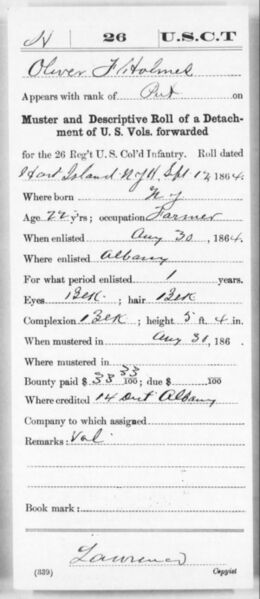 H 26 U.S.C.T
Oliver F. Holmes
Appears with rank of Pvt on
Muster and Descriptive Roll of a Detach-
ment of U. S. Vols. forwarded
for the 26 Reg't U. S. Col'd Infantry. Roll dated
Hart Island N.Y.H. Spt 12, 1864.
Where born N. Y
Age 22 y'rs; occupation Farmer
When enlisted Aug 30, 1864.
Where enlisted Albany
For what period enlisted 1 years.
Eyes Blk. ; hair Blk
Complexion Blk ; height 5 ft. 4 in.
When mustered in Aug 30, 186 .
Where mustered in
Bounty paid $ 33 33/100; due $ /100
Where credited 14 Dist Albany
Company to which assigned
Remarks: Vol.
Book mark:
Lawrence
(339) Copyist